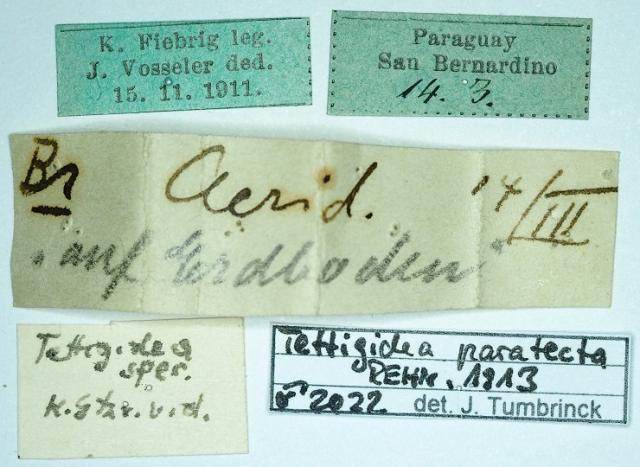 K. Fiebrig leg.
J. Vosseler ded.
15. 11. 1911.
Paraguay
San Bernardino
14. 3.
Br Acrid. 14/III
"auf Erdboden"
Tettigidea
sper.
Tettigidea paratecta
REHN. 1913
♂ 2022 det. J. Tumbrinck